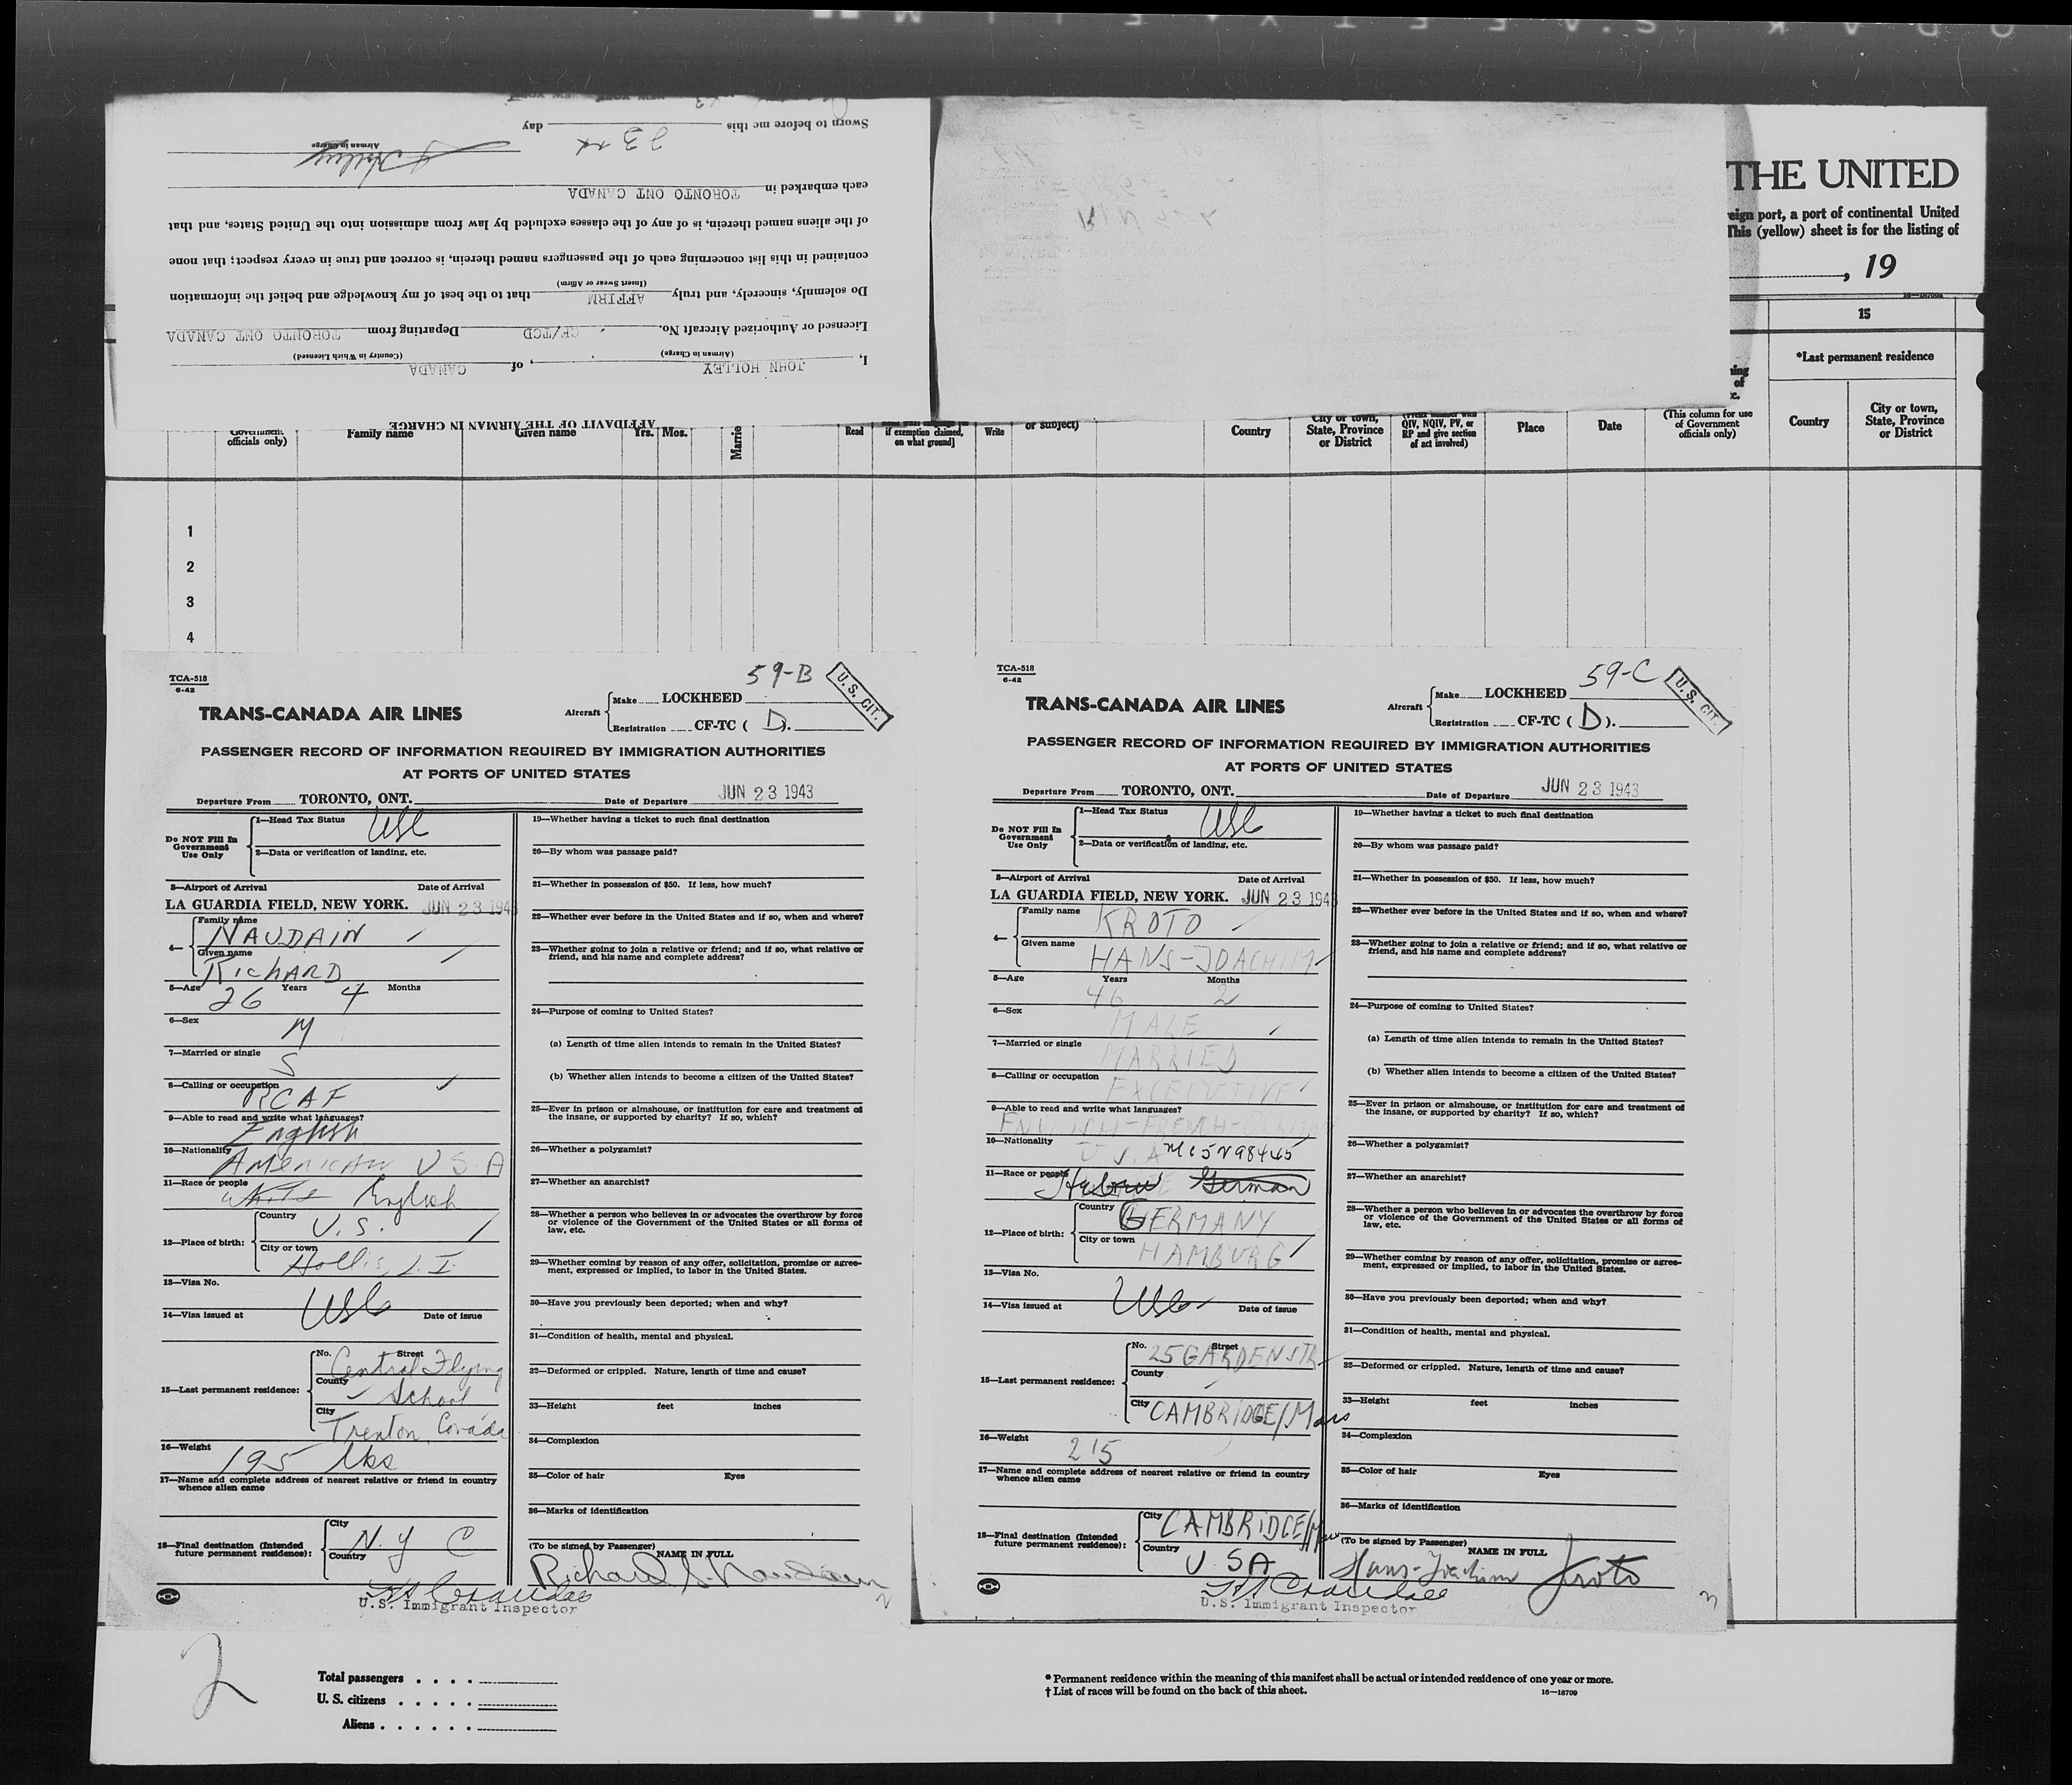 Sworn to before me this 23rd day
Airman in Charge
each embarked in TORONTO ONT CANADA
of the aliens named therein, is of any of the classes excluded by law from admission into the United States, and that
contained in this list concerning each of the passengers named therein, is correct and true in every respect; that none
Do solemnly, sincerely, and truly AFFIRM that to the best of my knowledge and belief the information
(Insert Swear or Affirm)
Licensed or Authorized Aircraft No. CF/TCD Departing from TORONTO ONT CANADA
(Airman in Charge) (Country in Which Licensed)
I, JOHN HOLLEY, of CANADA
AFFIDAVIT OF THE AIRMAN IN CHARGE
THE UNITED
eign port, a port of continental United
This (yellow) sheet is for the listing of
, 19
15
*Last permanent residence
Government officials only)
Family name
Given name
Yrs. Mos.
Read
if exemption claimed, on what ground]
Write
or subject)
Country
City or town, State, Province or District
QIV, NQIV, PV, or RP and give section of act involved)
Place
Date
(This column for use of Government officials only)
Country
City or town, State, Province or District
1
2
3
4
TCA-518
6-42
59-B
U.S. CIT.
TRANS-CANADA AIR LINES
Aircraft
Make LOCKHEED
Registration CF-TC ( D ).
PASSENGER RECORD OF INFORMATION REQUIRED BY IMMIGRATION AUTHORITIES
AT PORTS OF UNITED STATES
Departure From TORONTO, ONT. Date of Departure JUN 23 1943
Do NOT Fill In Government Use Only
1—Head Tax Status USC
2—Data or verification of landing, etc.
3—Airport of Arrival Date of Arrival
LA GUARDIA FIELD, NEW YORK. JUN 23 1943
4— Family name NAUDAIN
Given name RICHARD
5—Age 26 Years 4 Months
6—Sex M
7—Married or single S
8—Calling or occupation RCAF
9—Able to read and write what languages?
English
10—Nationality AMERICAN U.S.A
11—Race or people White English
12—Place of birth: Country U.S.
City or town Hollis, L.I.
13—Visa No.
14—Visa issued at USC Date of issue
15—Last permanent residence: No. Street Central Flying
County School
City Trenton, Canada
16—Weight 195 lbs
17—Name and complete address of nearest relative or friend in country
whence alien came
18—Final destination (Intended future permanent residence): City N.Y C
Country
19—Whether having a ticket to such final destination
20—By whom was passage paid?
21—Whether in possession of $50. If less, how much?
22—Whether ever before in the United States and if so, when and where?
23—Whether going to join a relative or friend; and if so, what relative or
friend, and his name and complete address?
24—Purpose of coming to United States?
(a) Length of time alien intends to remain in the United States?
(b) Whether alien intends to become a citizen of the United States?
25—Ever in prison or almshouse, or institution for care and treatment of
the insane, or supported by charity? If so, which?
26—Whether a polygamist?
27—Whether an anarchist?
28—Whether a person who believes in or advocates the overthrow by force
or violence of the Government of the United States or all forms of
law, etc.
29—Whether coming by reason of any offer, solicitation, promise or agree-
ment, expressed or implied, to labor in the United States.
30—Have you previously been deported; when and why?
31—Condition of health, mental and physical.
32—Deformed or crippled. Nature, length of time and cause?
33—Height feet inches
34—Complexion
35—Color of hair Eyes
36—Marks of identification
(To be signed by Passenger) NAME IN FULL
Richard S. Naudain
U.S. Immigrant Inspector
2
TCA-518
6-42
59-C
U.S. CIT.
TRANS-CANADA AIR LINES
Aircraft
Make LOCKHEED
Registration CF-TC ( D ).
PASSENGER RECORD OF INFORMATION REQUIRED BY IMMIGRATION AUTHORITIES
AT PORTS OF UNITED STATES
Departure From TORONTO, ONT. Date of Departure JUN 23 1943
Do NOT Fill In Government Use Only
1—Head Tax Status USC
2—Data or verification of landing, etc.
3—Airport of Arrival Date of Arrival
LA GUARDIA FIELD, NEW YORK. JUN 23 1943
4— Family name KROTO
Given name HANS-JOACHIM
5—Age 46 Years 2 Months
6—Sex MALE
7—Married or single MARRIED
8—Calling or occupation EXCECUTIVE
9—Able to read and write what languages?
10—Nationality U.S.A
11—Race or people Hebrew German
12—Place of birth: Country GERMANY
City or town HAMBURG
13—Visa No.
14—Visa issued at USC Date of issue
15—Last permanent residence: No. 25 Street GARDEN STR
County
City CAMBRIDGE/Mass
16—Weight 215
17—Name and complete address of nearest relative or friend in country
whence alien came
18—Final destination (Intended future permanent residence): City CAMBRIDGE/Mass
Country U.S.A
19—Whether having a ticket to such final destination
20—By whom was passage paid?
21—Whether in possession of $50. If less, how much?
22—Whether ever before in the United States and if so, when and where?
23—Whether going to join a relative or friend; and if so, what relative or
friend, and his name and complete address?
24—Purpose of coming to United States?
(a) Length of time alien intends to remain in the United States?
(b) Whether alien intends to become a citizen of the United States?
25—Ever in prison or almshouse, or institution for care and treatment of
the insane, or supported by charity? If so, which?
26—Whether a polygamist?
27—Whether an anarchist?
28—Whether a person who believes in or advocates the overthrow by force
or violence of the Government of the United States or all forms of
law, etc.
29—Whether coming by reason of any offer, solicitation, promise or agree-
ment, expressed or implied, to labor in the United States.
30—Have you previously been deported; when and why?
31—Condition of health, mental and physical.
32—Deformed or crippled. Nature, length of time and cause?
33—Height feet inches
34—Complexion
35—Color of hair Eyes
36—Marks of identification
(To be signed by Passenger) NAME IN FULL
Hans-Joachim Kroto
U.S. Immigrant Inspector
3
2
Total passengers
U. S. citizens
Aliens
* Permanent residence within the meaning of this manifest shall be actual or intended residence of one year or more.
† List of races will be found on the back of this sheet.
16—18709